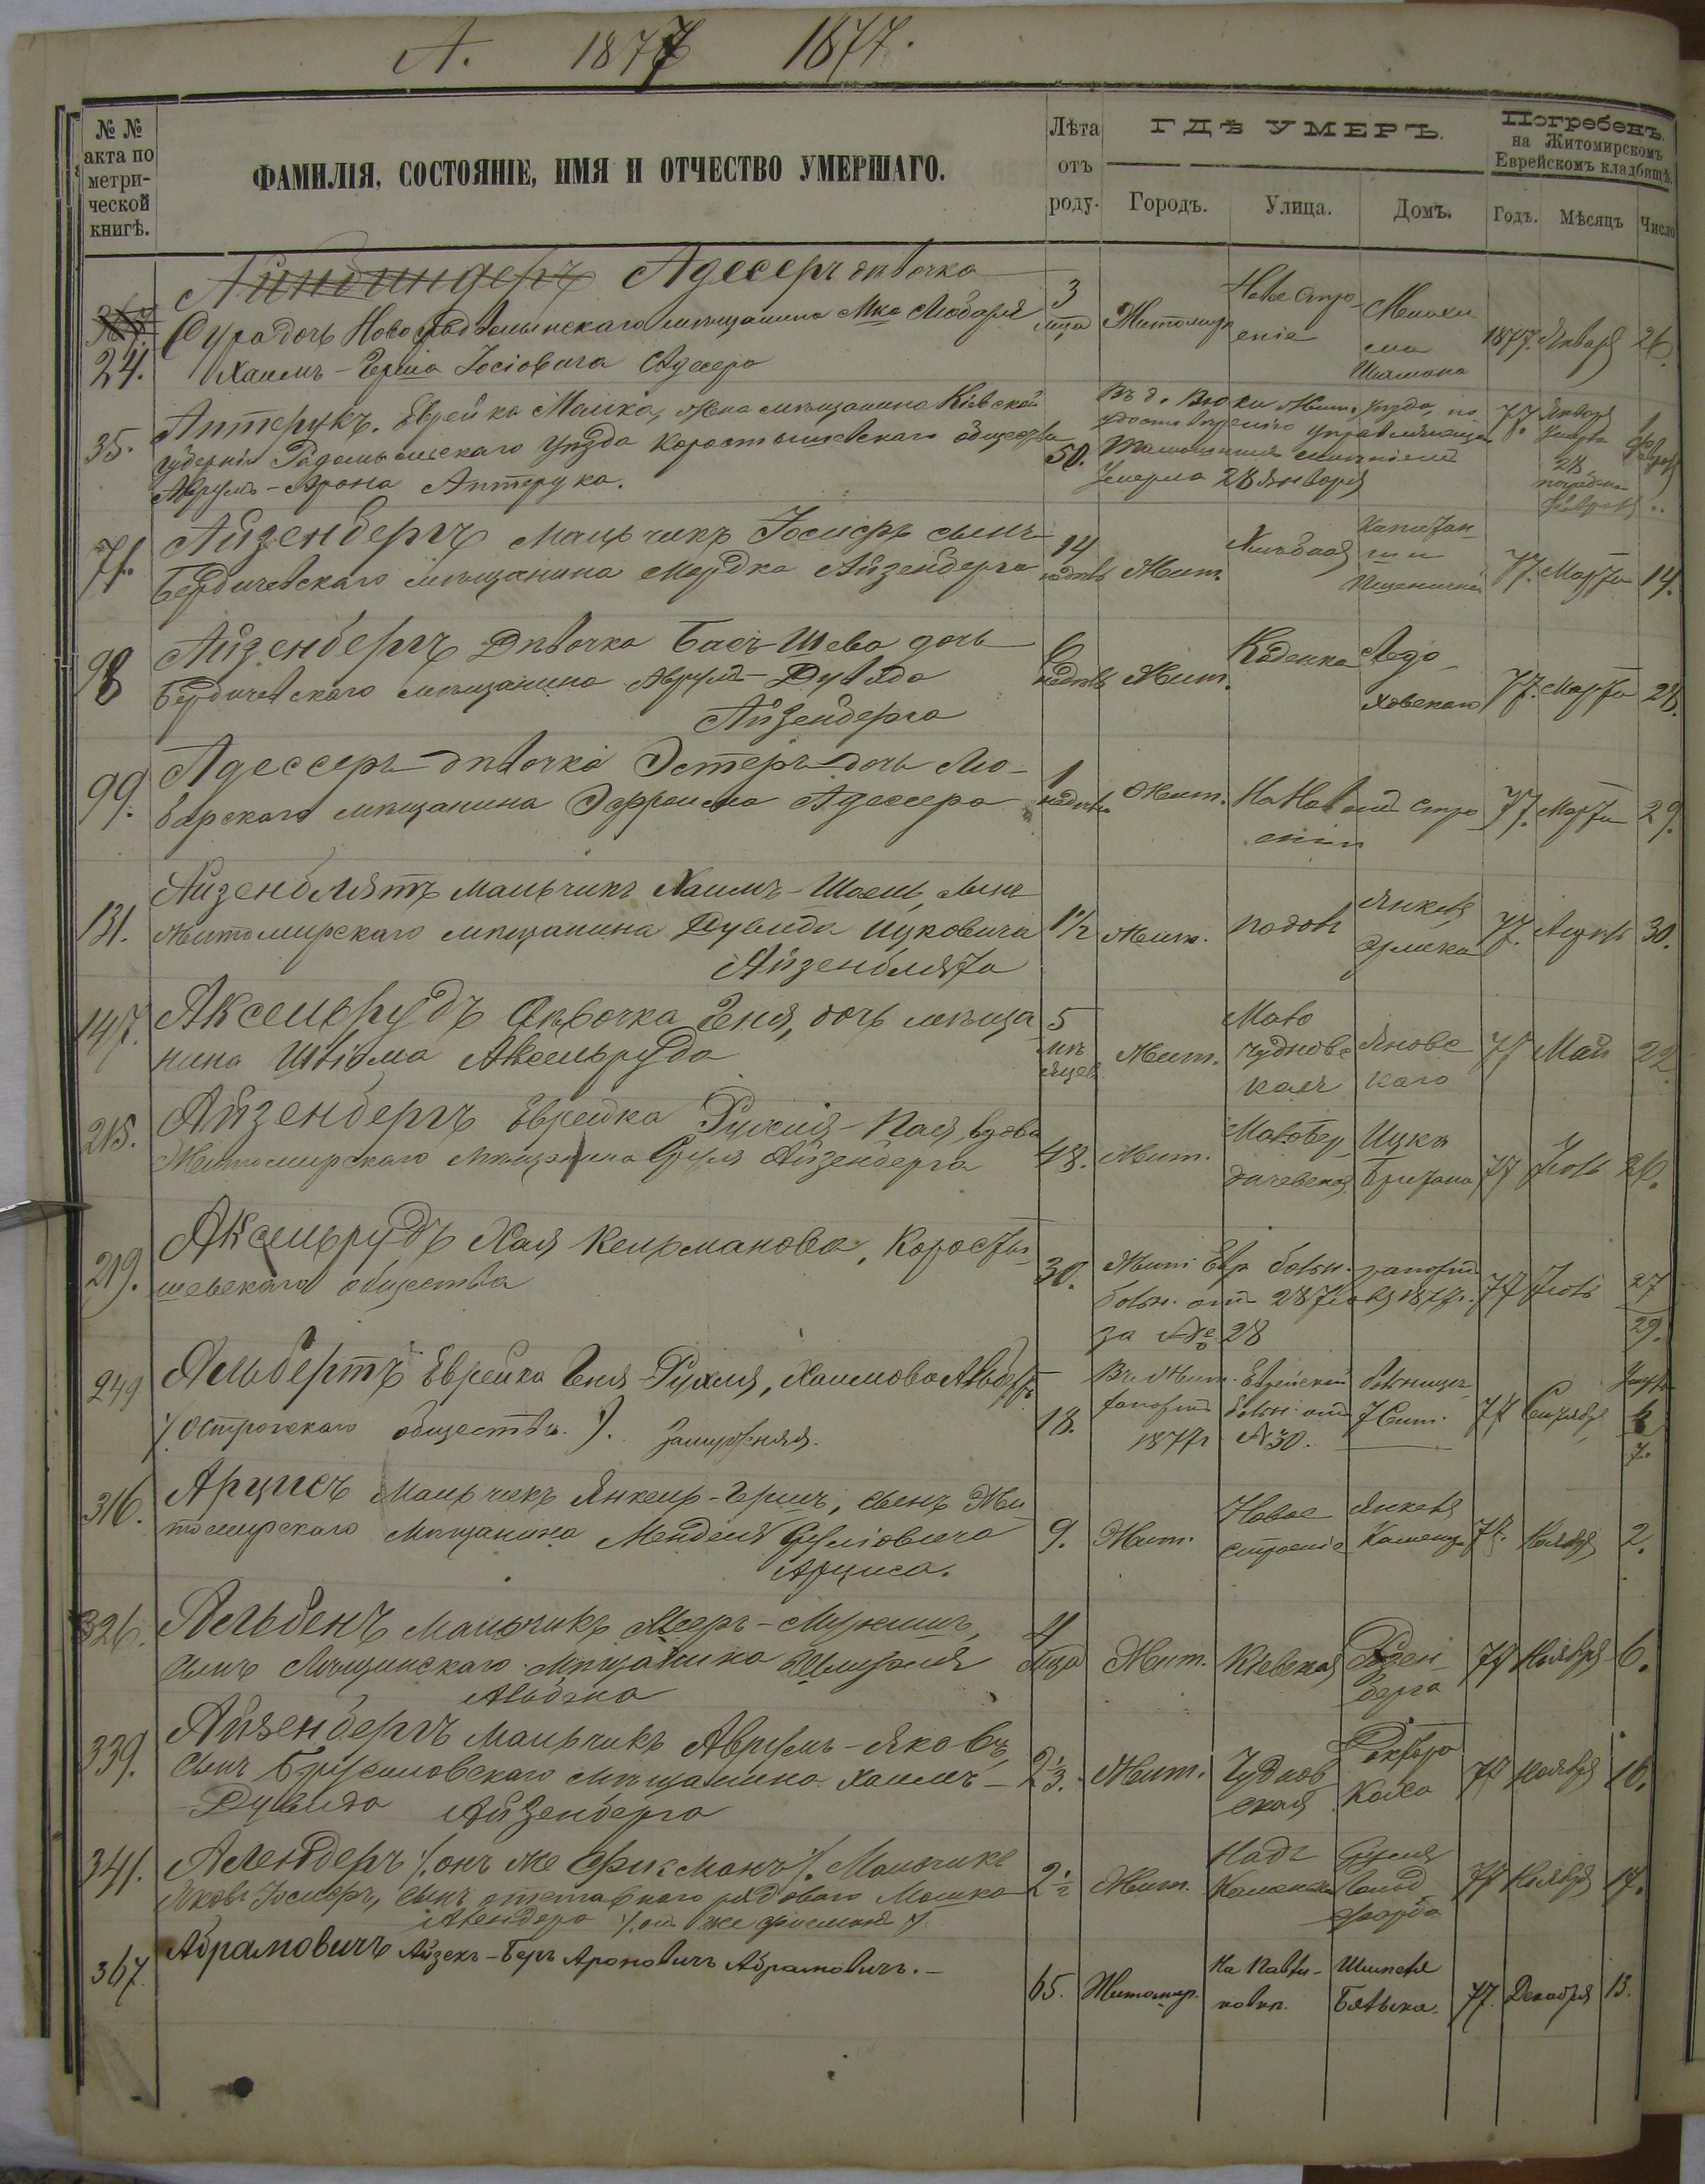 А. 1877 1877.
№ №
акта по
метри-
ческой
книгѣ.
ФАМИЛІЯ, СОСТОЯНІЕ, ИМЯ И ОТЧЕСТВО УМЕРШАГО.
Лѣта
отъ
роду.
ГДѢ УМЕРЪ.
Городъ. Улица. Домъ.
Погребенъ.
на Житомирскомъ
Еврейскомъ кладбищѣ.
Годъ. Мѣсяцъ Число
Адессеръ дѣвочка
24. Сура дочь Новоградволынскаго мѣщанина Мка Любаря
Хаимъ-Герша Іосіовича Адесера
3 мца Житомир Новое стро-
еніе 1877. Января 26.
35. Аптерукъ. Еврейка Малка, жена мѣщанина Кіевской
губерніи Радомысльскаго уѣзда Коростышевскаго общества
Аврумъ-Арона Аптерука.
50. Въ д. Вюки Жит. уѣзда, по
Умерла 28 января
77. Января
28
71. Айзенбергъ Мальчикъ Іосифъ сынъ
Бердичевскаго мѣщанина Мордка Айзенберга
14 недѣль Жит. Хлѣбная 77. Марта 14.
98 Айзенбергъ Дѣвочка Бася-Шева дочь
Бердичевскаго мѣщанина Аврумъ-Дувида
Айзенберга
6 недѣль Жит. Каденка Ледо-
ховскаго 77. Марта 28.
99. Адессеръ дѣвочка Эстеръ дочь Лю-
барскаго мѣщанина Эфроима Адессера
1 недѣль Жит. На Новомъ стро
еніи 77. Марта 29.
131. Айзенблятъ мальчикъ Хаимъ-Шоель, сынъ
Житомирскаго мѣщанина Дувида Ицковича
Айзенблята
1½ Жит. Подолъ Янкеля 77. Апрѣль 30.
147. Аксельрудъ Дѣвочка Геня, дочь мѣща
нина Шліома Аксельруда
5 мѣсяцевъ Жит. Мало
чуднове
кая Янове
каго 77 Май 22.
215. Айзенбергъ Еврейка Рухля-Пая, вдова
Житомирскаго мѣщанина Сруля Айзенберга
48. Жит. Малобер
дичевская Ицка 77 Іюль 26.
219. Аксельрудъ Хая Кельманова, Коросты
шевскаго общества
30. Жит Евр больн. рапортъ
больн. отъ 28 Іюля 1877г.
за № 28 77 Іюль 27
29.
249 Альбертъ Еврейка Геня-Рухля, Хаимова Альбертъ
/. Острогскаго общества. /. замужняя.
18. Въ Жит. Еврейской больницѣ
рапортъ больн. отъ 7 Сент.
1877г № 30. 77 Сентября 6
7.
316. Арцисъ Мальчикъ Янкель-Гершъ, сынъ Жи
томирскаго Мѣщанина Менделя Срулiовича
Арциса.
9. Жит. Новое
строеніе Янкеля 77. Ноября 2.
326. Альбенъ Мальчикъ Мееръ-
сынъ мѣщанина Шмуля
Альбена
4 мѣца Жит. Кіевская Розен-
берга 77 Ноября 6.
339. Айзенбергъ Мальчикъ Аврумъ-Яковъ,
сынъ Брусиловскаго мѣщанина Хаимъ-
Дувида Айзенберга
2⅓. Жит. Чуднов
ская Доктора 77 Ноября 16.
341. Алендеръ /. онъ же Фиксманъ /. Мальчикъ
Яковъ Іосифъ, сынъ отставнаго рядоваго Мошка
Алендера /. онъ же Фиксманъ /.
2½ Жит. Надъ
Каменкою Сруля 77 Ноября 17.
367. Абрамовичъ Айзекъ-Беръ Ароновичъ Абрамовичъ.-
65. Житомир. На Павли-
ковкѣ. 77. Декабря 13.